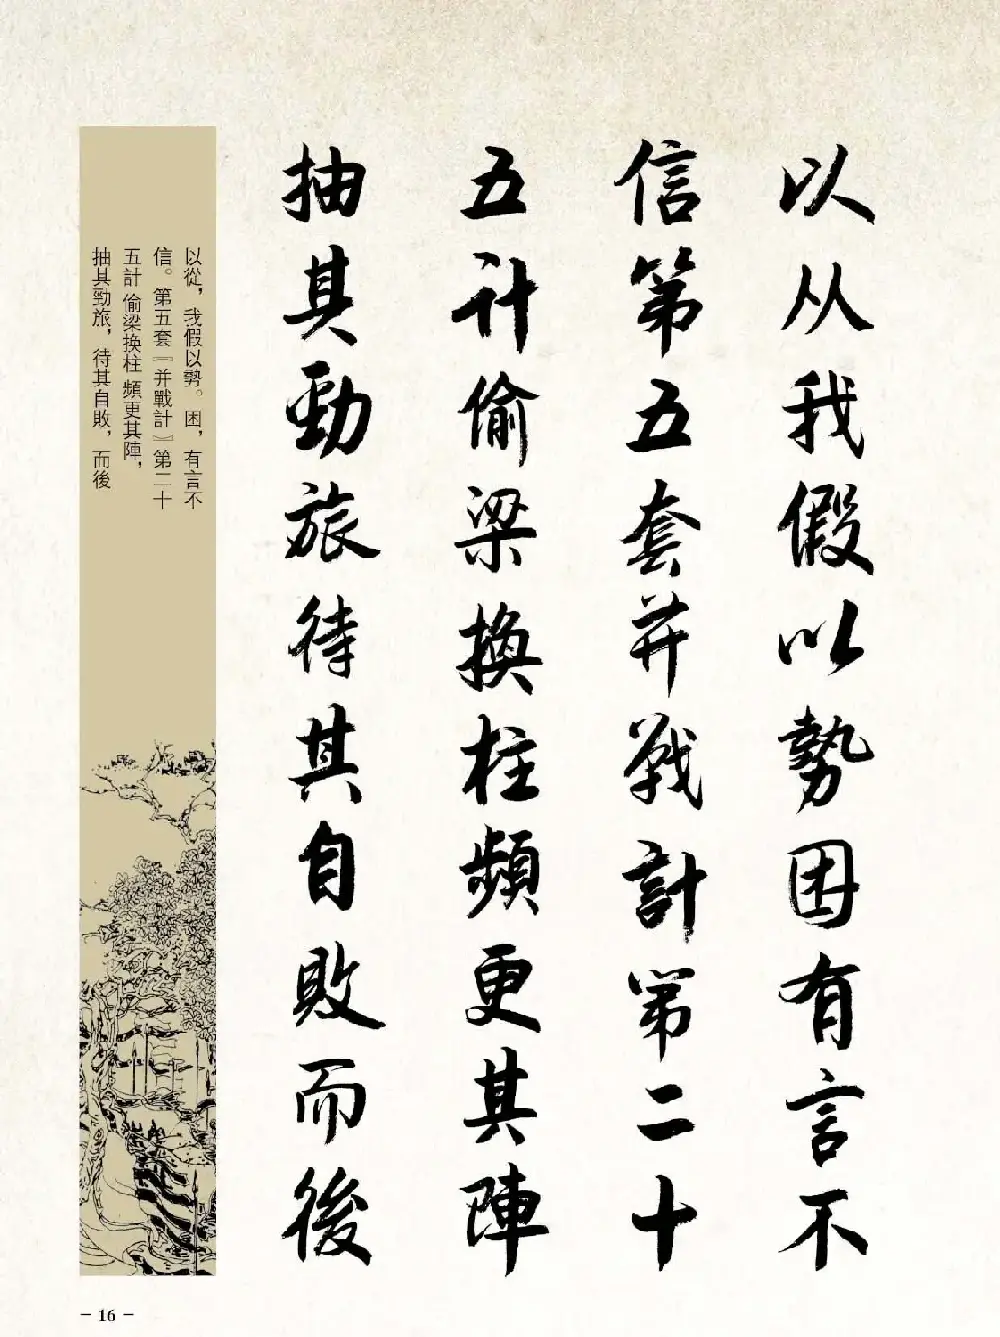 以从我假以勢困有言不
信第五套并戰計第二十
五計偷梁換柱頻更其陣
抽其勁旅待其自敗而後
以從，我假以勢。困，有言不
信。第五套『并戰計』第二十
五計 偷梁換柱 頻更其陣，
抽其勁旅，待其自敗，而後
- 16 -